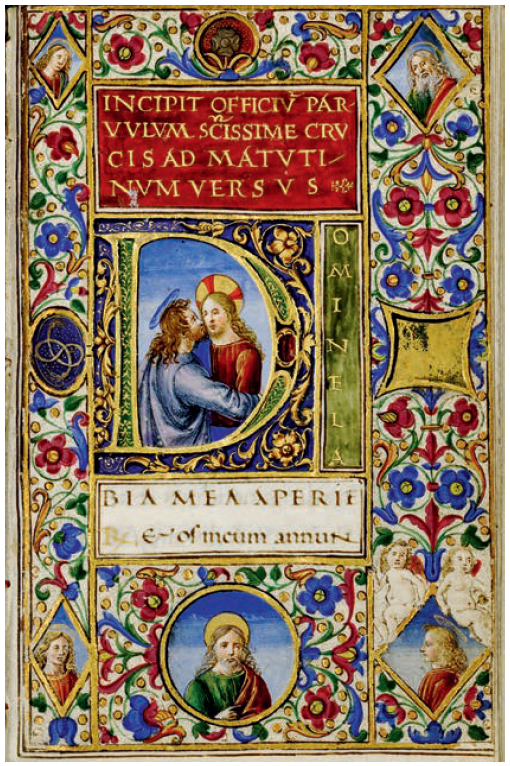 INCIPIT OFFICIV̄ PAR
VVLVM SCISSIME CRV
CIS AD MATVTI-
NVM VERSVS
D
OMINELA
BIA MEA APERIE
& os meum annun